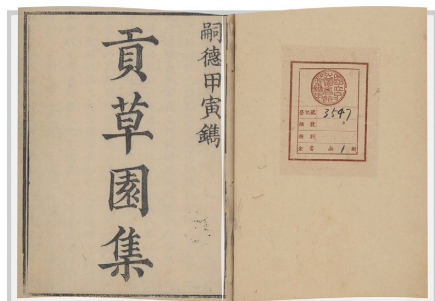 嗣德甲寅鐫
貢草園集
3547
1